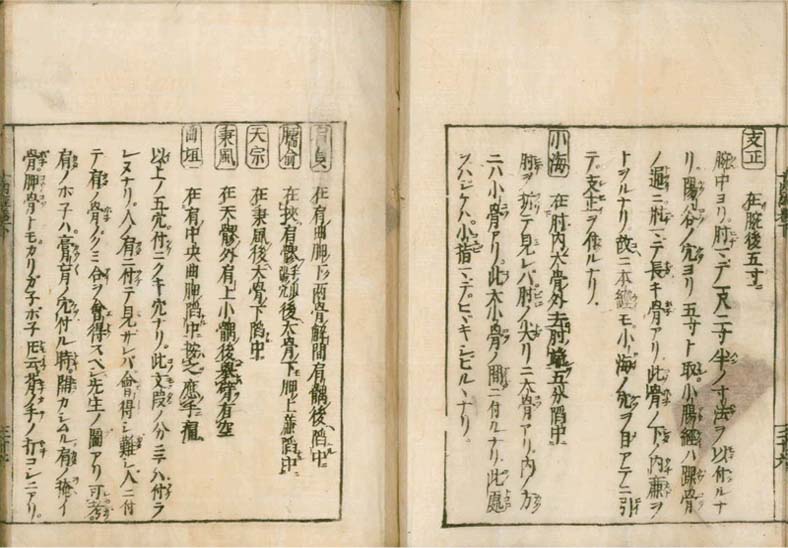 支正 在腕後五寸
腕中ヨリ。肘マデノ一尺二寸半ノ寸法ヲ以付ルナ
リ。陽谷ノ穴ヨリ。五寸ト取。小腸經ハ踝骨
ノ邊ニ肘マデ長キ骨アリ。此骨ノ下ノ内廉ヲ
トヲルナリ。故ニ本經モ。小海ノ穴ヲ目アテニ引
テ支正ヲ作ルナリ。
小海 在肘内大骨外去肘端五分陷中
肘ヲ折テ見レバ肘ノ尖リニ大骨アリ。内ノ方
ニハ小骨アリ。此大小骨ノ間ニ付ルナリ。此處
ヲハジケバ。小指マデヒヾキシビルヽナリ。
肩貞 在肩曲胛下兩骨解間肩髃後陷中
臑俞 在挾肩髎後大骨下胛上廉陷中
天宗 在秉風後大骨下陷中
秉風 在天髎外肩上小髃後擧臂有空
曲垣 在肩中央曲胛陷中按之應手痛
以上ノ五穴付ニクキ穴ナリ。此文段ノ分ニテハ付ラ
レヌナリ。人ノ肩ニ付テ見ザレバ會得シ難シ人ニ付
テ肩ノ骨ノクミ合ヲ會得スベシ先生ノ圖アリ可考
肩ノホ子ハ。膏肓ノ穴付ル時。カシムル肩ノ掩イ
骨胛骨トモカリガ子ボ子トモ云。手ノ打コレニアリ。